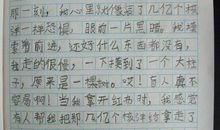 那一刻，我心里好像被放了几亿个核
弹一样恐惧，眼前一片黑暗。我摸
索着前进，还好什么东西都没有，
我走的很慢，一下摸到了一个大柱
子，原来是一棵树。哎！盲人真不
容易啊！当我拿开红布时，我感觉
有人帮我把那几亿个核弹给拿走了